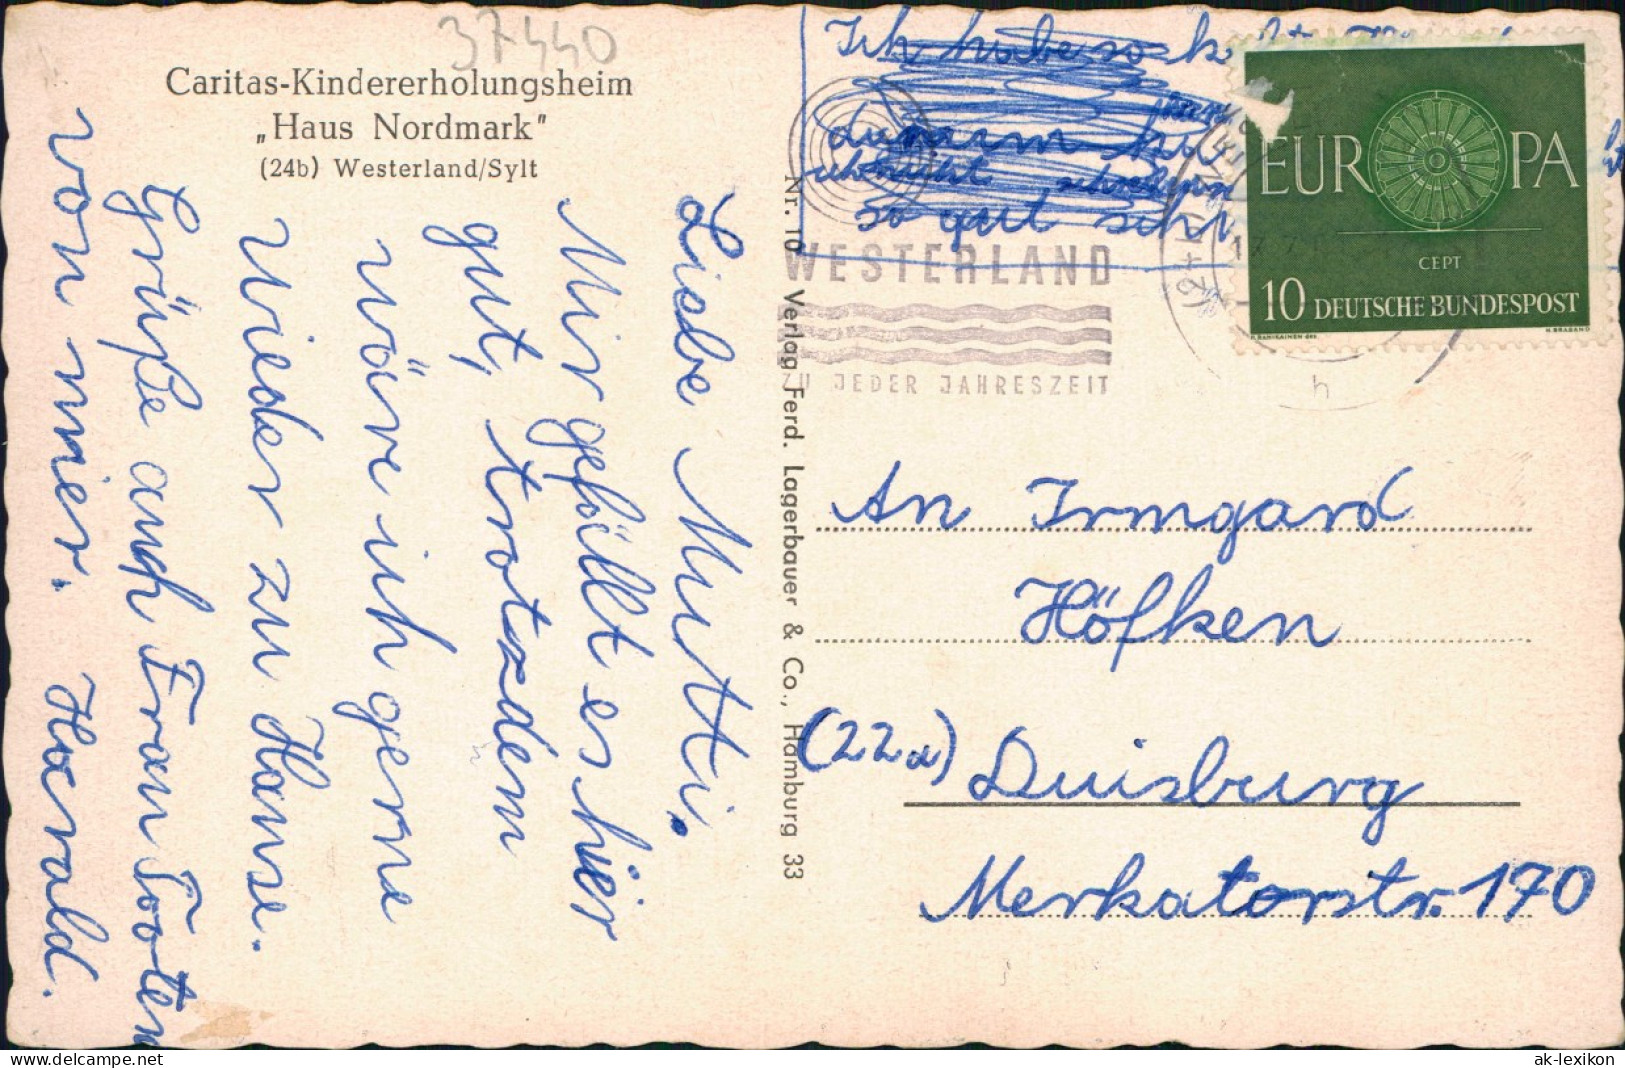 37440
Caritas-Kindererholungsheim
„Haus Nordmark"
(24b) Westerland/Sylt
Liebe Mutti.
Mir gefällt es hier
gut, trotzdem
wäre ich gerne
wieder zu Hause.
Grüße auch Frau Tooten
von mier. Harald.
Nr. 10 Verlag Ferd. Lagerbauer & Co., Hamburg 33
Ich habe so
so gut
WESTERLAND
ZU JEDER JAHRESZEIT
EUROPA
CEPT
10 DEUTSCHE BUNDESPOST
H. BRABAND
h
An Irmgard
Höfken
(22a) Duisburg
Merkatorstr. 170
delcampe.net
ak-lexikon